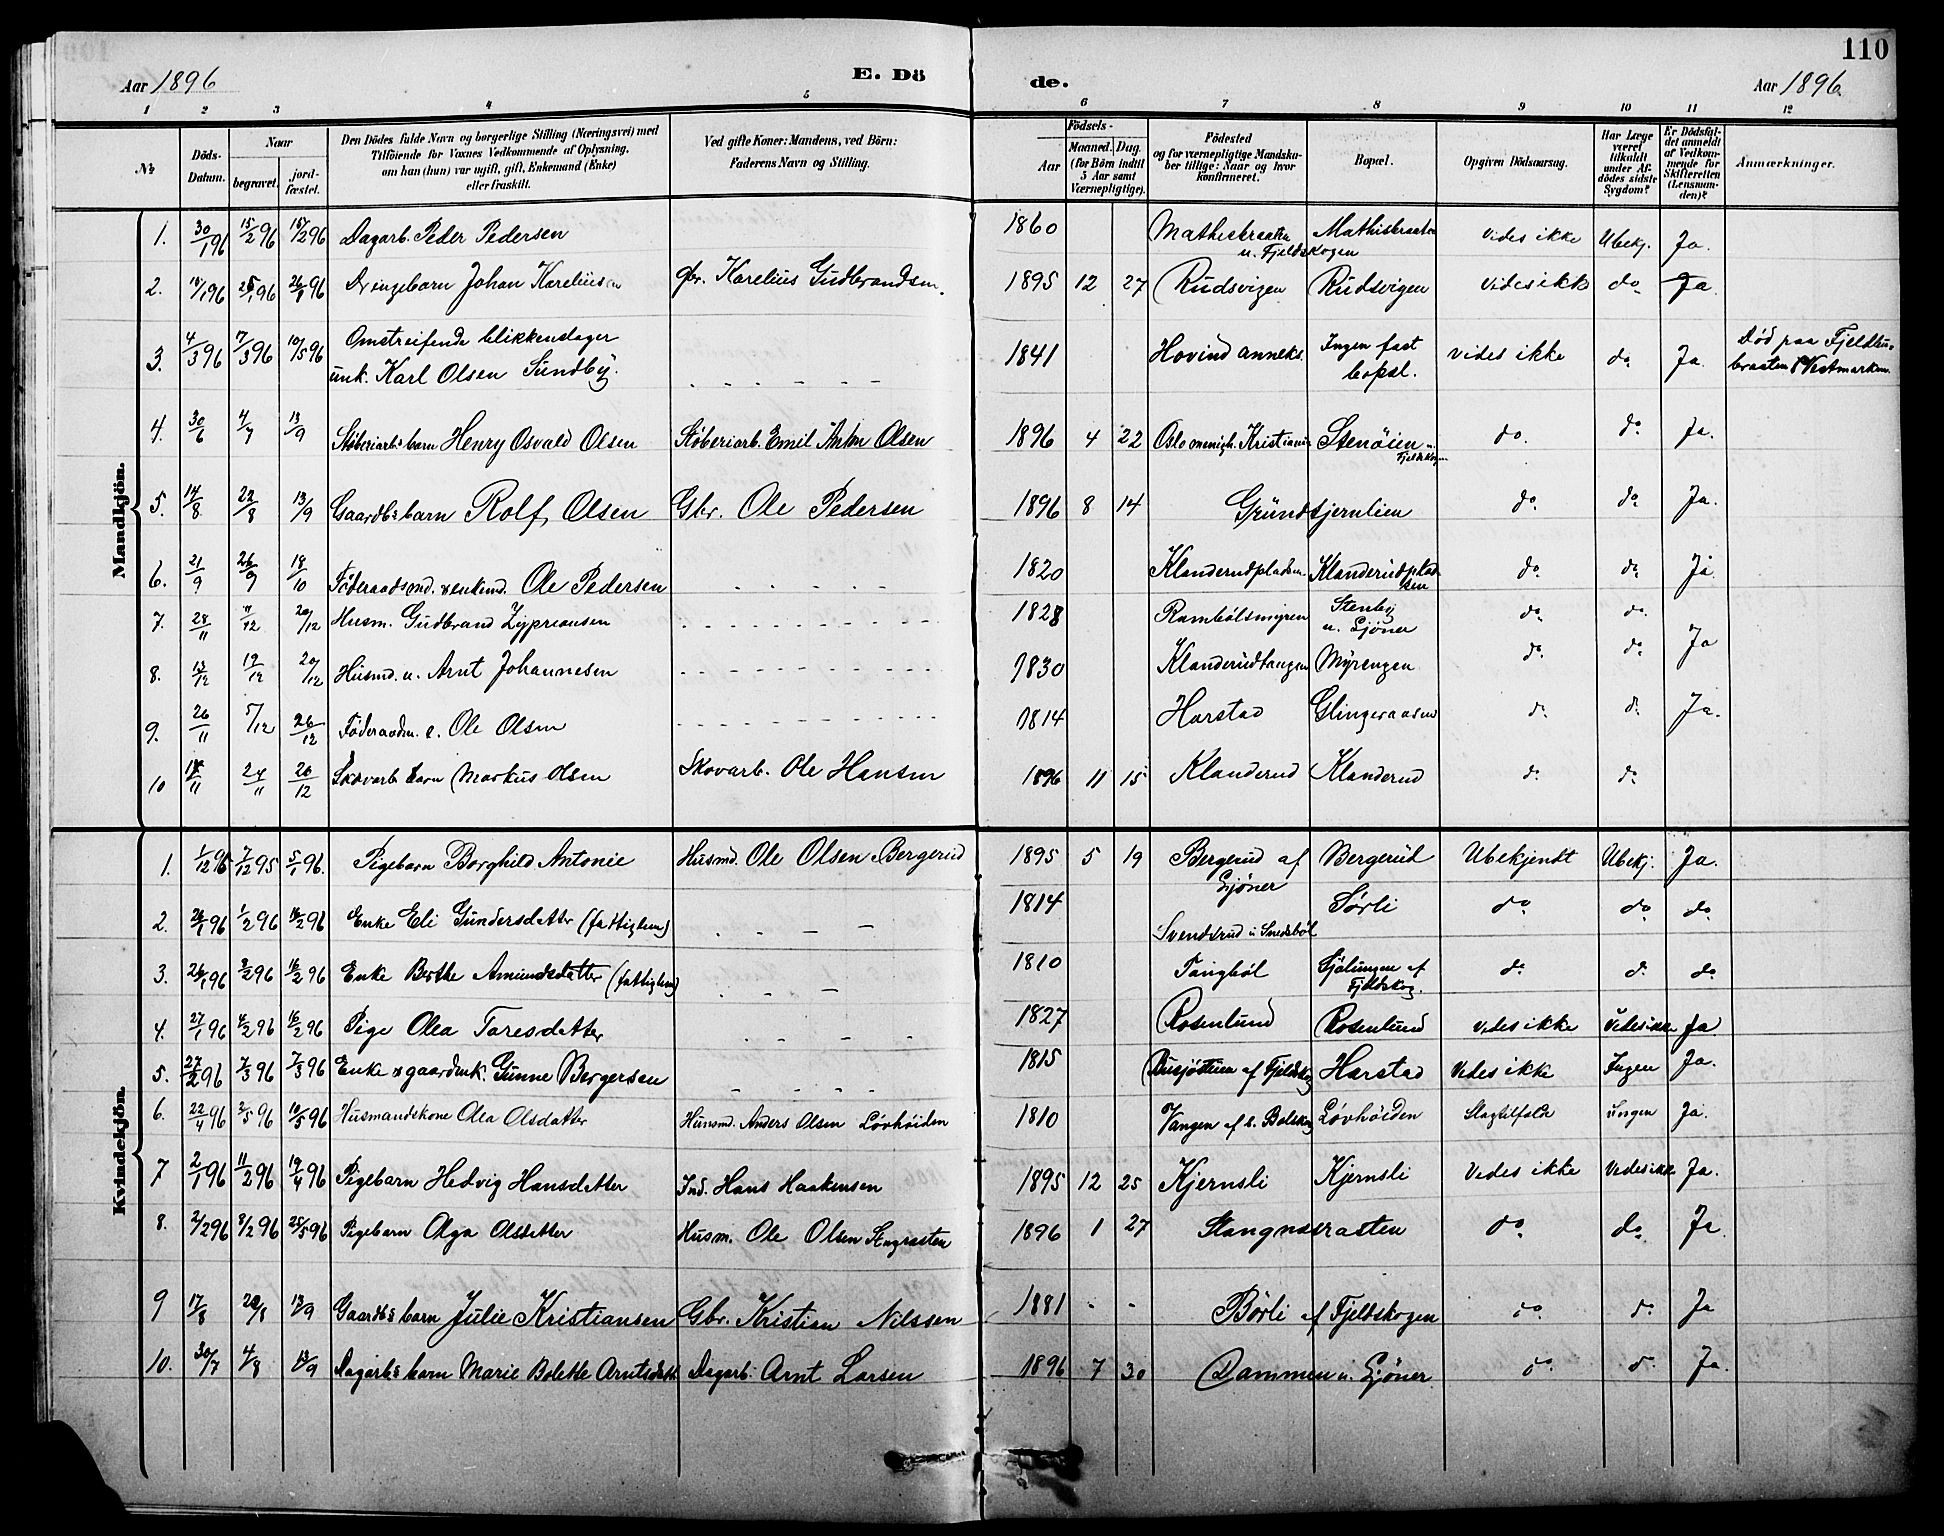 110
Aar 1896
E. Dö
de.
Aar 1896
1 2 3 4 5 6 7 8 9 10 11 12
No
Döds-Datum.
Naar
begravet.
jord-fæstet.
Den Dödes fulde Navn og borgerlige Stilling (Næringsvei) med
Tilföiende for Voxnes Vedkommende af Oplysning,
om han (hun) var ugift, gift, Enkemand (Enke)
eller fraskilt.
Ved gifte Koner: Mandens, ved Börn:
Faderens Navn og Stilling.
Födsels-
Aar
Maaned. Dag.
(for Börn indtil 5 Aar samt Værnepligtige).
Födested
og for værnepligtige Mandska-
ber tillige: Naar og hvor
konfirmeret.
Bopæl.
Opgiven Dödsaarsag.
Har Læge været tilkaldt under Af-dödes sidste Sygdom?
Er Dödsfal-det anmeldt af Vedkom-mende for Skifteretten (Lensman-den)?
Anmærkninger.
Mandkjön.
1. 30/1 96 15/2 96 16/2 96 Dagarb. Peder Pedersen 1860 Mathisbraaten u. Fjeldskogen Mathisbraaten Vides ikke Ubekj. Ja.
2. 25/1 96 26/1 96 Drengebarn Johan Kareliusen gbr. Karelius Gudbrandsen. 1895 12 27 Rudsvigen Rudsvigen Vides ikke do Ja
3. 4/3 96 7/3 96 10/5 96 Omstreifende blikkenslager
unk. Karl Olsen Sundby. - - - - - 1841 Hovind anneks. Ingen fast bopæl. Vides ikke do Ja. Død paa Fjeldbu-
braaten Vestmarken
4. 30/6 4/7 13/9 Støberiarb.s barn Henry Osvald Olsen Støberiarb. Emil Anton Olsen 1896 4 22 Oslo menigh. Kristiania Stenöien u. Fjeldskogen do. do. Ja.
5. 14/8 22/8 13/9 Gaardb.s barn Rolf Olsen Gbr. Ole Pedersen 1896 8 14 Grundtjernlien do. do. Ja.
6. 21/9 26/9 18/10 Föderaadsmd. & enkemd. Ole Pedersen - - - - 1820 Klanderudpladsen. Klanderudpladsen do. do. Ja.
7. 28/11 11/12 20/12 Husm. Gudbrand Zypriansen - - - - 1828 Rambölsmyren Stenby u. Gjöner do. do.
8. 13/12 19/12 20/12 Husmd. u. Arnt Johannesen - - - - 1830 Klanderudtangen Myrengen do. do. Ja
9. 26/11 5/12 26/12 Föderaadm. e. Ole Olsen - - - - 1814 Harstad do. do. Ja.
10 24/11 26/12 Skovarb barn Markus Olsen Skovarb. Ole Hansen 1896 11 15 Klanderud Klanderud do. do.
Kvindekjön.
1. 1/12 95 7/12 95 5/1 96. Pigebarn Borghild Antonie Husmd. Ole Olsen Bergerud 1895 5 19 Bergerud af Gjöner Bergerud Ubekjendt Ubekj. Ja.
2. 1/2 96 16/2 96 Enke Eli Gundersdatter (fattiglem) - - - 1814 Svendsrud Sörli do do do
3. 26/1 96 16/2 96 Enke Berthe Amundsdatter (fattiglem) - - - 1810 Tangböl af Fjeldskog. do. do. do.
4. 27/1 96 4/2 96 16/2 96 Pige Olea Taresdatter - - - - 1827 Rosenlund Rosenlund Vides ikke Vides ikke Ja
5. 27/2 96 7/3 96 7/3 96 Enke & gaardmk. Gunne Bergersen - - - - 1815 af Fjeldskog Harstad Vides ikke Ingen Ja.
6. 22/4 96 2/5 96 10/5 96 Husmandskone Olea Olsdatter Husmd. Anders Olsen Lövhöiden 1810 Vangen af s. Bolskog Lövhöiden Slagtilfælde Ingen Ja.
7 2/1 96 11/2 96 19/4 96 Pigebarn Hedvig Hansdatter Ind. Hans Haakensen 1895 12 25 Kjernsli Kjernsli Vides ikke Vides ikke Ja.
8. 2/2 96 8/2 96 25/5 96 Pigebarn Olga Olsdatter Husm. Ole Olsen 1896 1 27 do. do. Ja
9 17/8 20/8 13/9 Gaardb.s barn Julie Kristiansen Gbr. Kristian Nilssen 1881 - - Börli af Fjeldskogen do. do. Ja
10. 30/7 4/8 13/9 Dagarb.s barn Marie Bolette Arntsdatt. Dagarb. Arnt Larsen 1896 7 30 Dammen u. Gjöner do. do. Ja.